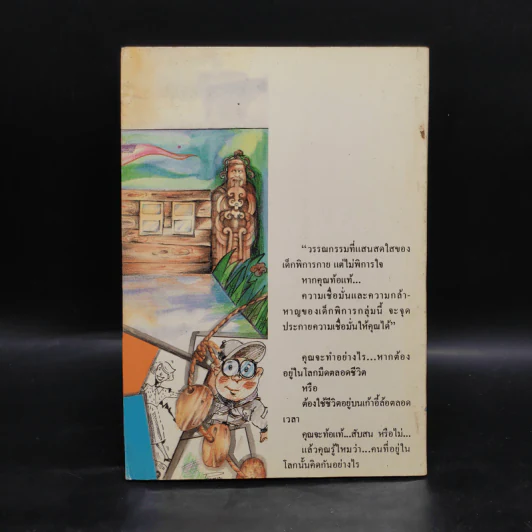 “วรรณกรรมที่แสนสดใสของ
เด็กพิการกาย แต่ไม่พิการใจ
หากคุณท้อแท้...
ความเชื่อมั่นและความกล้า-
หาญของเด็กพิการกลุ่มนี้ จะจุด
ประกายความเชื่อมั่นให้คุณได้”
คุณจะทำอย่างไร...หากต้อง
อยู่ในโลกมืดตลอดชีวิต
หรือ
ต้องใช้ชีวิตอยู่บนเก้าอี้ล้อตลอด
เวลา
คุณจะท้อแท้...สับสน หรือไม่...
แล้วคุณรู้ไหมว่า...คนที่อยู่ใน
โลกนั้นคิดกันอย่างไร